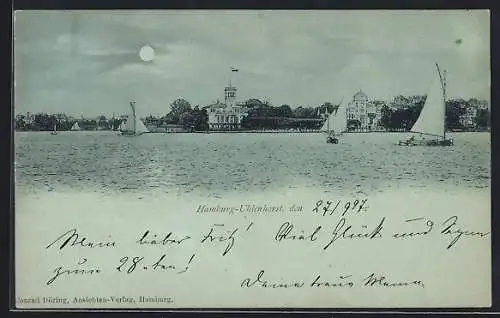 Hamburg-Uhlenhorst, den 27/9 97.
Mein lieber Fritz! Viel Glück und Segen
zum 28ten!
Deine treue Mama.
Conrad Döring, Ansichten-Verlag, Hamburg.